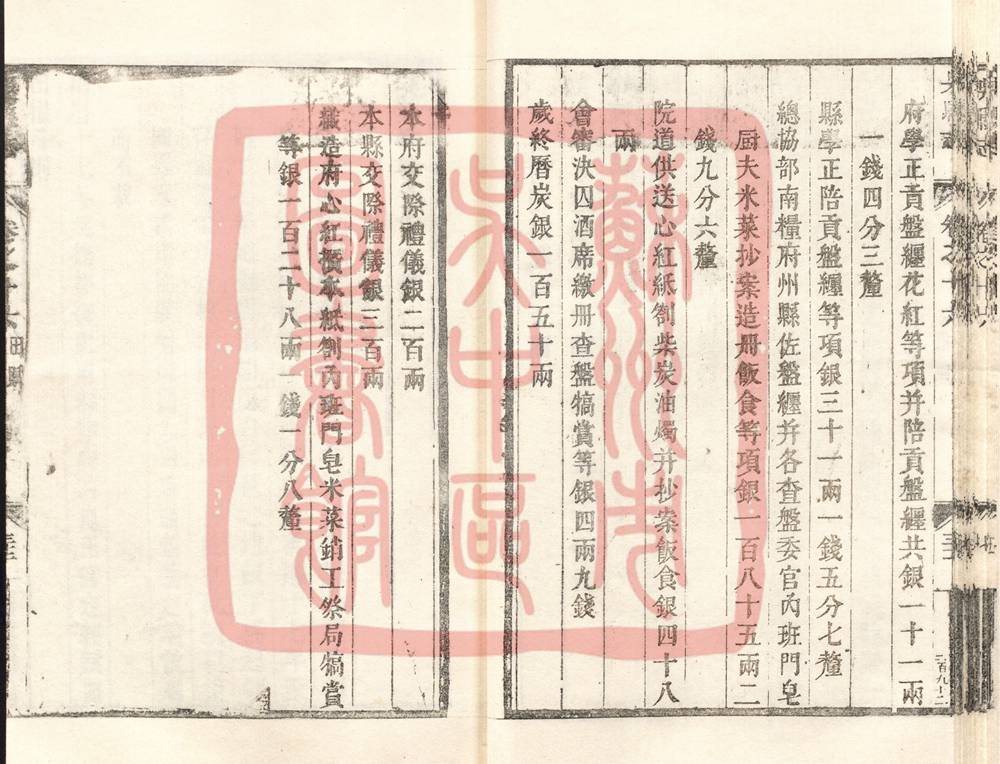 府學正貢盤纏花紅等項并陪貢盤纏共銀一十一兩
一錢四分三釐
縣學正陪貢盤纏等項銀三十一兩一錢五分七釐
總協部南糧府州縣佐盤纏并各查盤委官內班門皂
厨夫米菜抄案造册飯食等項銀一百八十五兩二
錢九分六釐
院道供送心紅紙劄柴炭油燭并抄案飯食銀四十八
兩
會審決囚酒席繳册查盤犒賞等銀四兩九錢
歲終曆炭銀一百五十兩
卷之十六
二百九十二
本府交際禮儀銀二百兩
本縣交際禮儀銀三百兩
織造府心紅紙劄內班門皂米菜銷工祭局犒賞
等銀一百二十八兩一錢一分八釐
蘇州市
吳中區
圖書館